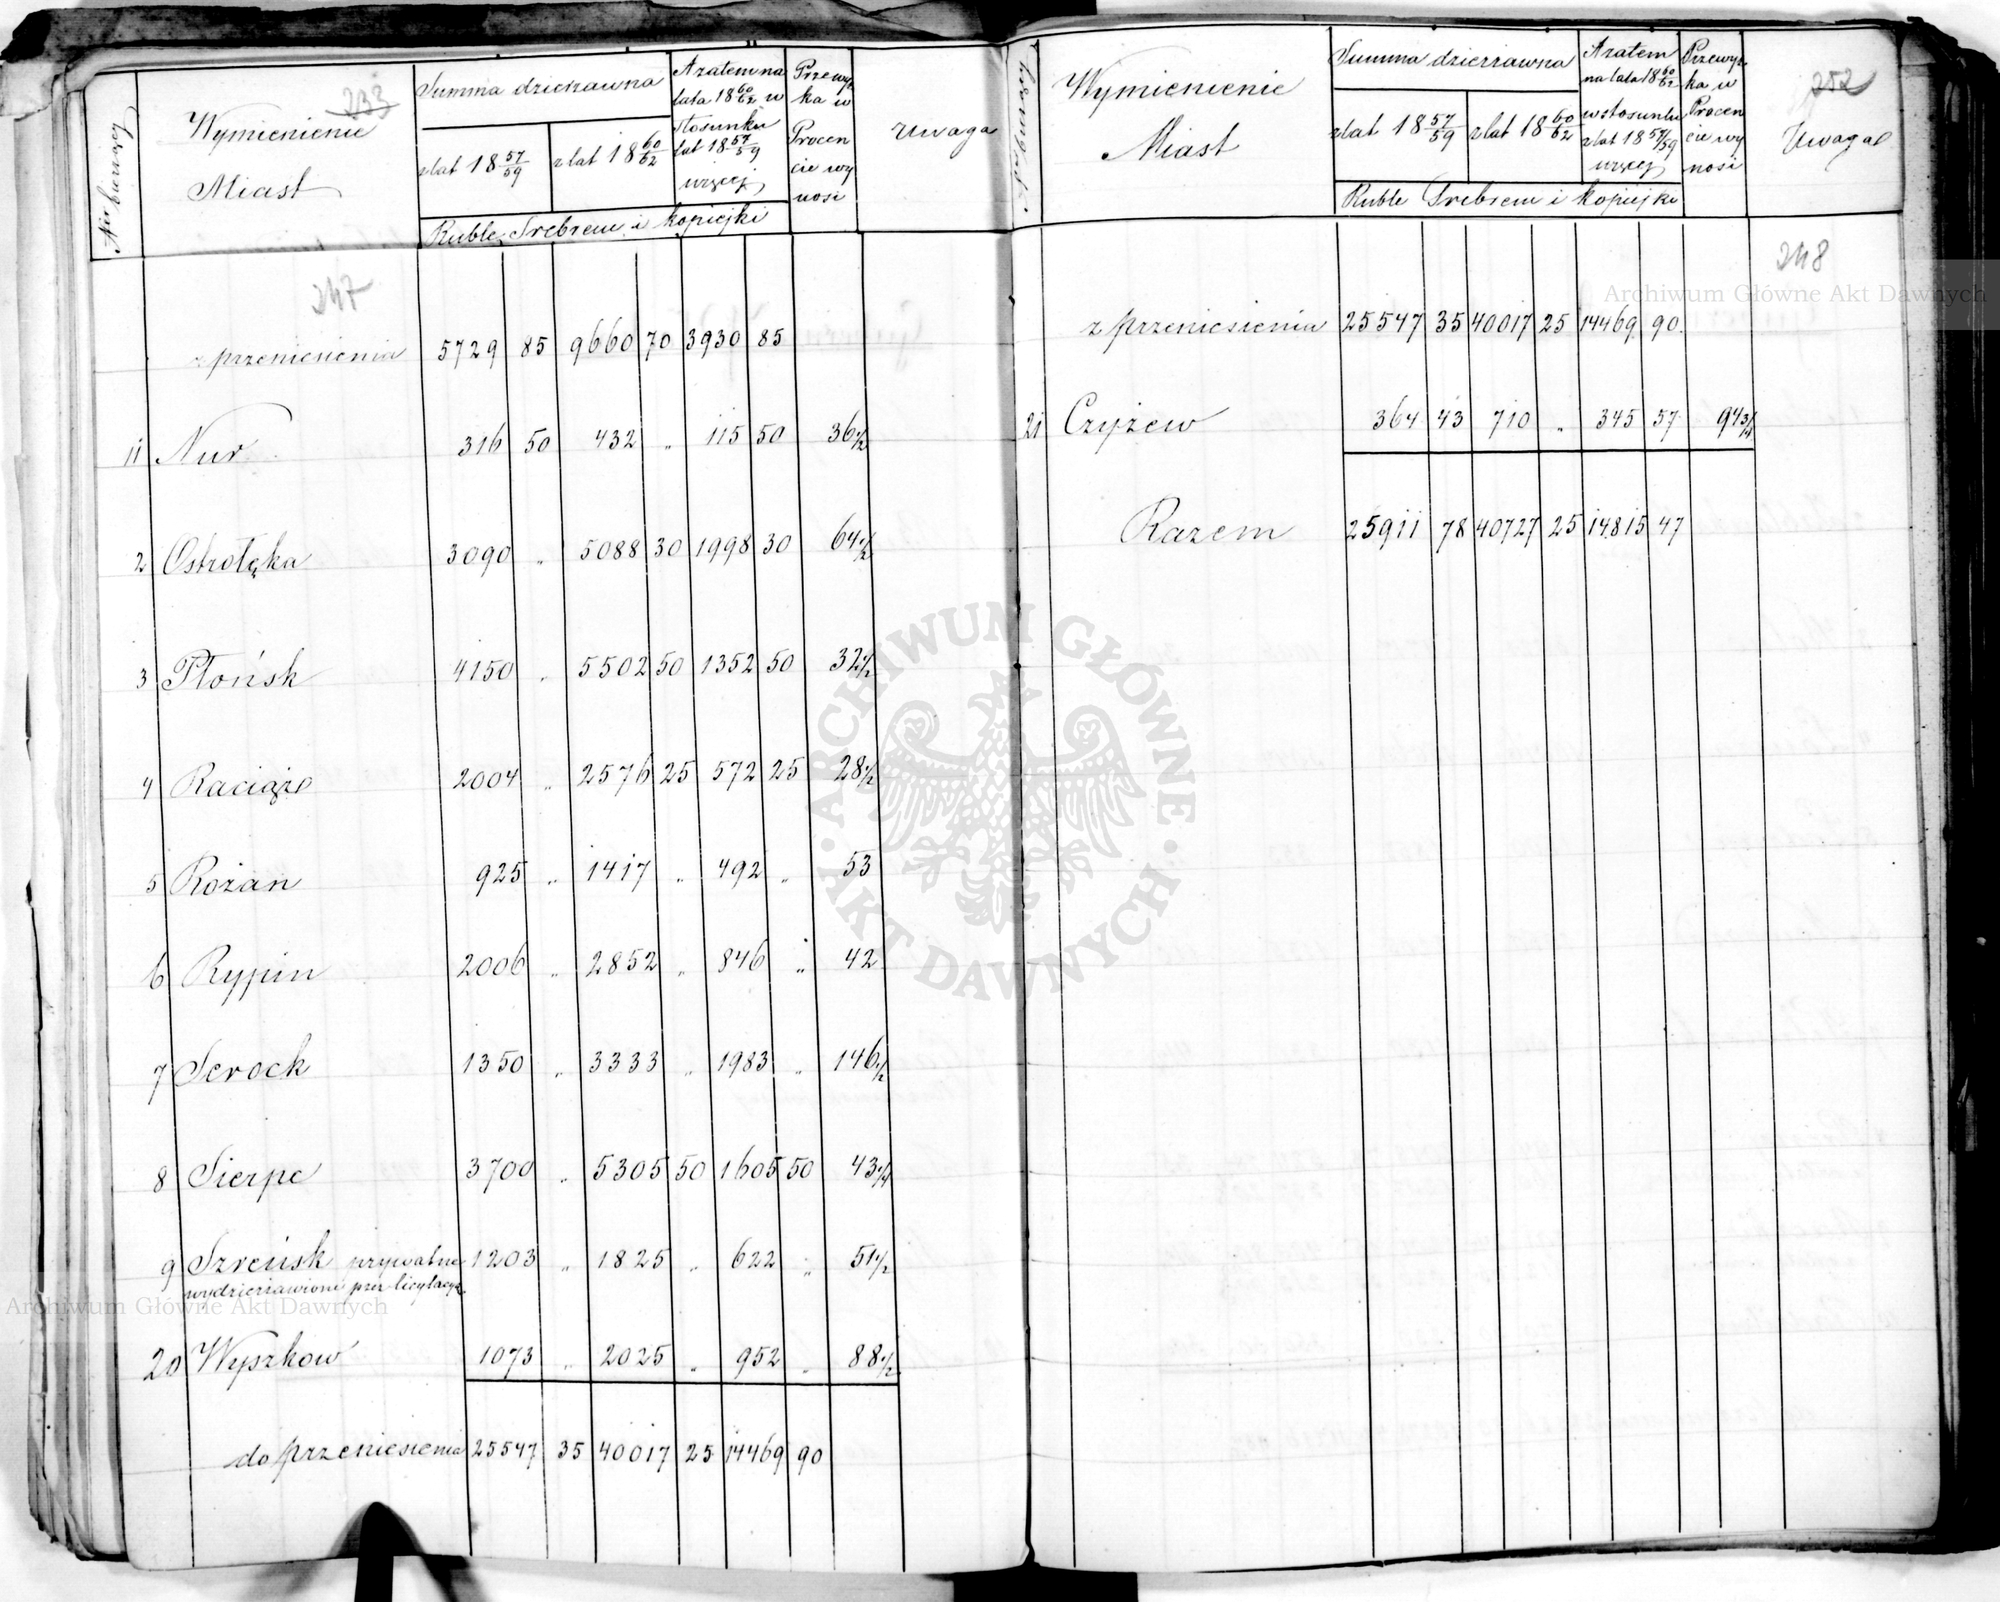 233
Nr bieżący
Wymienienie
Miast
Summa dzierżawna
z lat 18 57/59
z lat 18 60/62
A zatem na
lata 18 60/62 w
stosunku
lat 18 57/59
więcej
Przewyż
ka w
Procen
cie wy
nosi
Uwaga
Ruble Srebrem i kopiejki
247
z przeniesienia 5729 85 9660 70 3930 85
11 Nur 316 50 432 " 115 50 36 1/2
2 Ostrołęka 3090 " 5088 30 1998 30 64 1/2
3 Płońsk 4150 " 5502 50 1352 50 32 1/2
4 Raciąż 2004 " 2576 25 572 25 28 1/2
5 Rożan 925 " 1417 " 492 " 53
6 Rypin 2006 " 2852 " 846 " 42
7 Serock 1350 " 3333 " 1983 " 146 1/2
8 Sierpc 3700 " 5305 50 1605 50 43 1/4
9 Szreńsk prywatne 1203 " 1825 " 622 " 51 1/2
wydzierżawione przez licytacye
20 Wyszkow 1073 " 2025 " 952 " 88 1/2
do przeniesienia 25547 35 40017 25 14469 90
252
Wymienienie
Miast
Summa dzierżawna
z lat 18 57/59
z lat 18 60/62
A zatem
na lata 18 60/62
w stosunku
z lat 18 57/59
więcej
Przewyż
ka w
Procen
cie wy
nosi
Uwaga
Ruble Srebrem i kopiejki
248
z przeniesienia 25547 35 40017 25 14469 90
21 Czyżew 364 43 710 " 345 57 94 3/4
Razem 25911 78 40727 25 14815 47
Archiwum Główne Akt Dawnych
ARCHIWUM GŁÓWNE
AKT DAWNYCH
Archiwum Główne Akt Dawnych